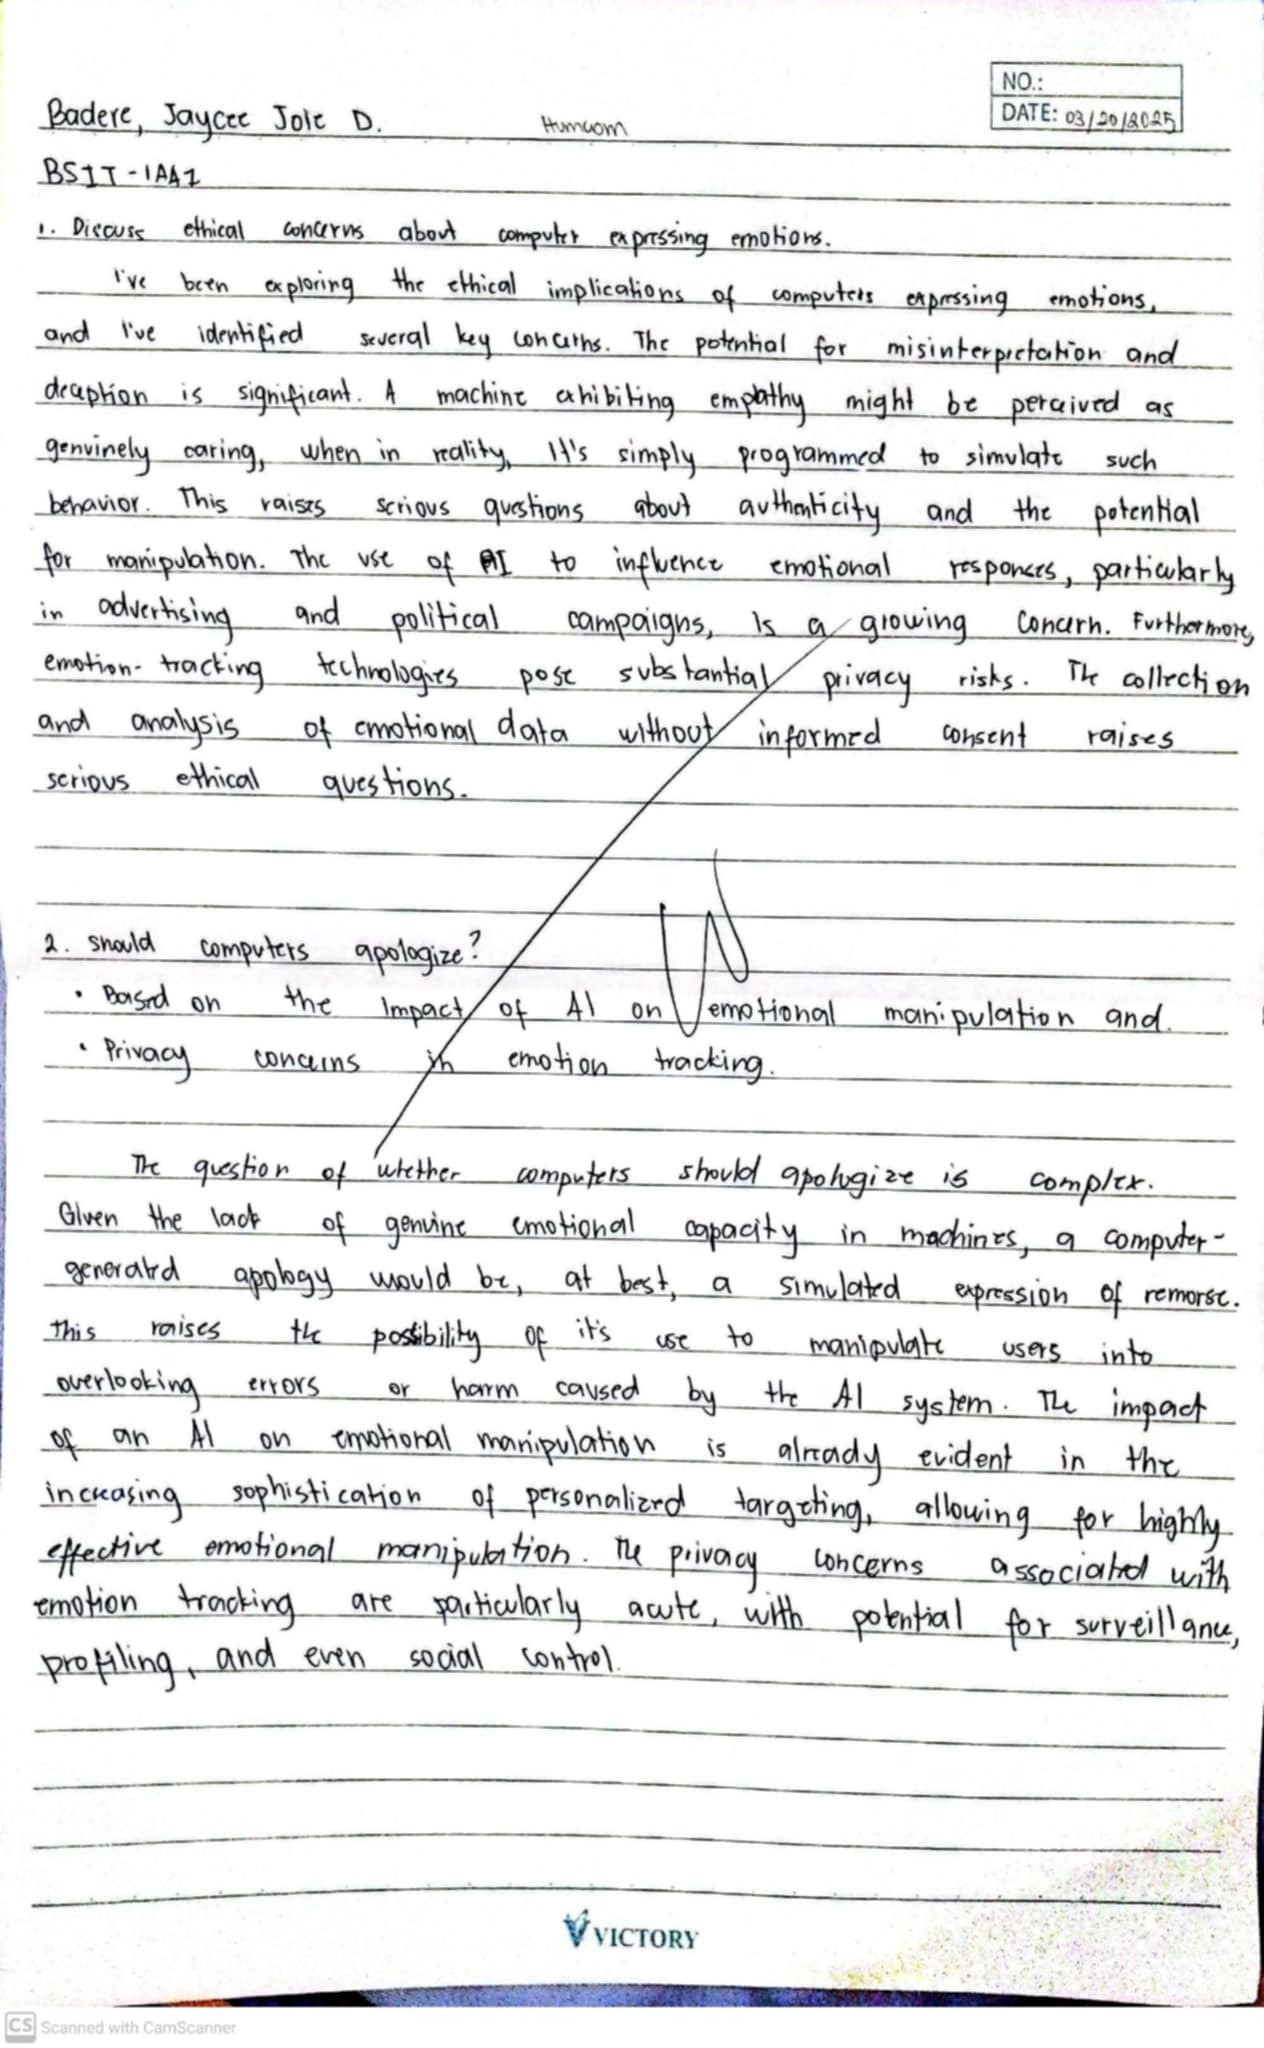 NO.:
DATE: 03/20/2025
Badere, Jaycee Jole D. Humcom
BSIT-1AA1
1. Discuss ethical concerns about computer expressing emotions.
I've been exploring the ethical implications of computers expressing emotions,
and I've identified several key concerns. The potential for misinterpretation and
deception is significant. A machine exhibiting empathy might be perceived as
genuinely caring, when in reality, It's simply programmed to simulate such
behavior. This raises serious questions about authenticity and the potential
for manipulation. The use of AI to influence emotional responses, particularly
in advertising and political campaigns, Is a growing concern. Furthermore,
emotion-tracking technologies pose substantial privacy risks. The collection
and analysis of emotional data without informed consent raises
serious ethical questions.
2. should computers apologize?
• Based on the Impact of AI on emotional manipulation and.
• Privacy concerns in emotion tracking.
The question of whether computers should apologize is complex.
Given the lack of genuine emotional capacity in machines, a computer-
generated apology would be, at best, a simulated expression of remorse.
This raises the possibility of it's use to manipulate users into
overlooking errors or harm caused by the AI system. The impact
of an AI on emotional manipulation is already evident in the
increasing sophistication of personalized targeting, allowing for highly
effective emotional manipulation. The privacy concerns associated with
emotion tracking are particularly acute, with potential for surveillance,
profiling, and even social control.
VICTORY
CS Scanned with CamScanner